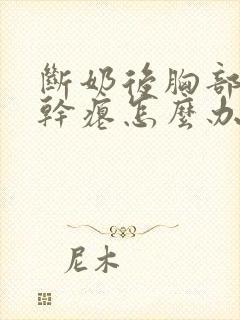 斷奶後胸部
幹瘪怎麼办
尼木